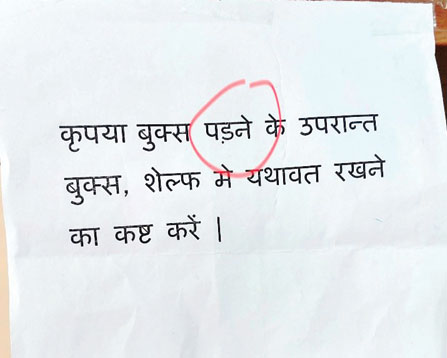 कृपया बुक्स पड़ने के उपरान्त
बुक्स, शेल्फ मे यथावत रखने
का कष्ट करें |